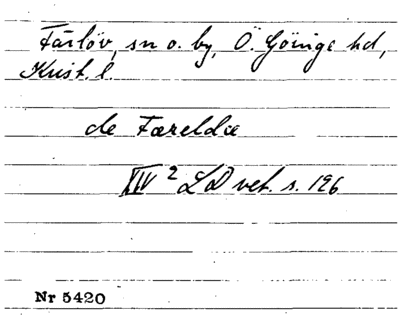 Färlöv, sn o. by, Ö. Göinge hd,
Krist. l.
de Færeldæ
XIV 2 LD vet. s. 196
Nr 5420